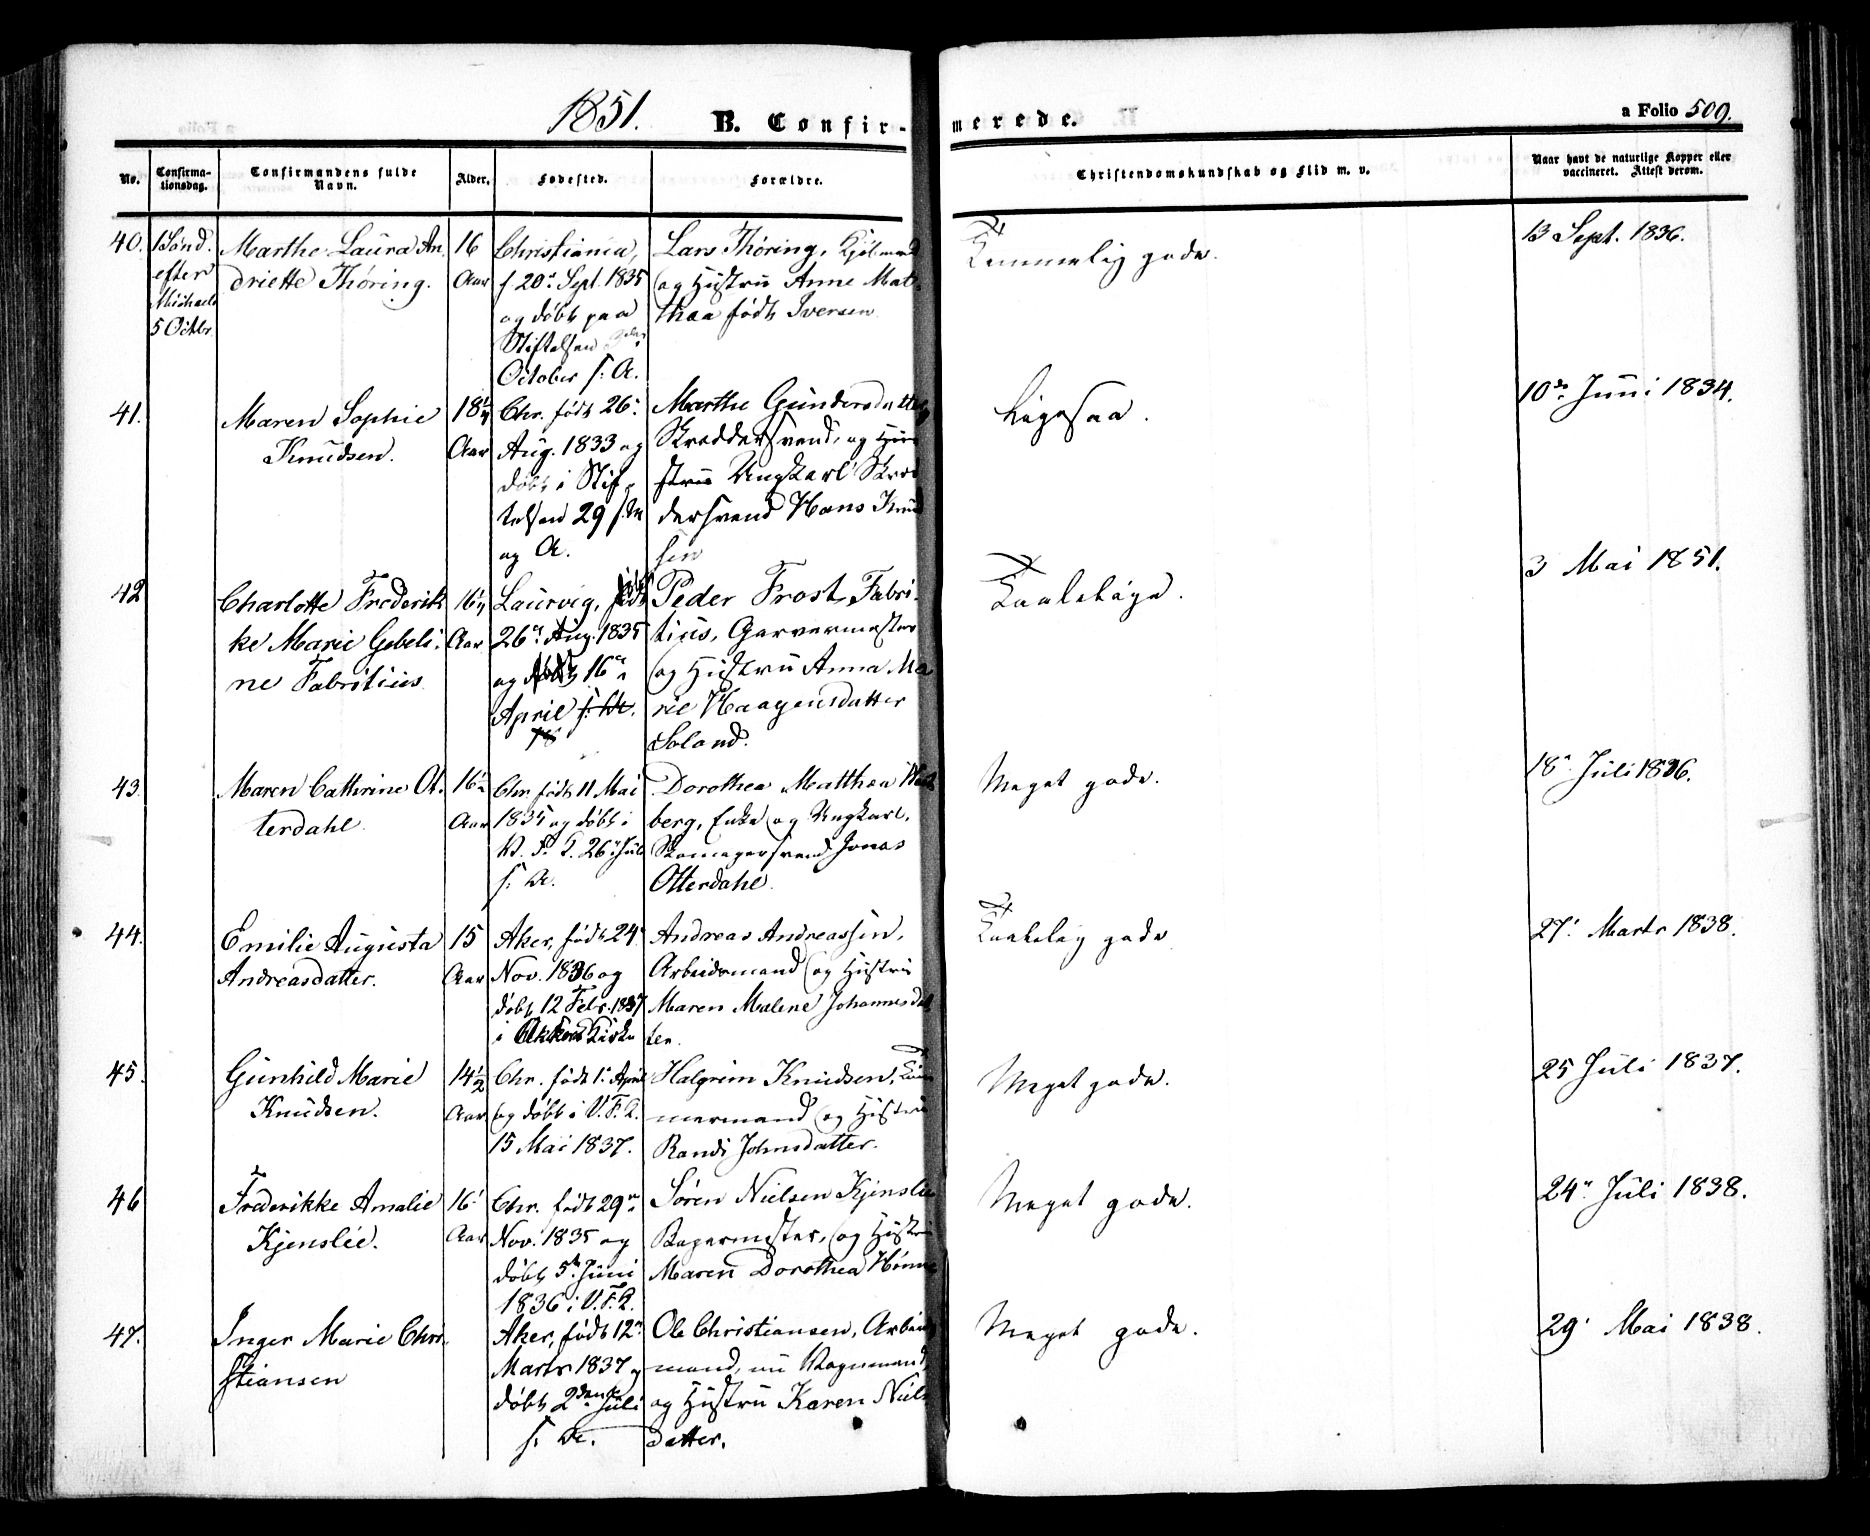 1851. B. Confir-
merede. a Folio 509.
No. Confirma-tionsdag. Confirmandens fulde Navn. Alder. Fødested. Forældre.
Christendomskundskab og Flid m. v. Naar havt de naturlige Kopper eller vaccineret. Attest derom.
40. 1 Sønd. efter Michaeli 5 Octbr.
Marthe Laura An
driette Thøring.
16
Aar
Christiania,
f. 20de Sept. 1835
og døbt paa
Stiftelsen
October s. A.
Lars Thøring,
og Hustru Anne Mat-
thea født Iversen
Temmelig gode.
13 Sept. 1836.
41.
Maren Sophie
Knudsen.
18 1/4
Aar
Chr. født 26
Aug. 1833 og
døbt i Stif
telsen 29 s. M
og A.
Marthe Gundersdatter
Skræddersvend, og Hu
stru Ungkarl Skræd
dersvend Hans Knud
sen
Ligesaa.
10de Juni 1834.
42
Charlotte Frederik
ke Marie Gebeli-
ne Fabritius
16
Aar
Laurvig, født
26de Aug. 1835
og døbt 16de
April s. A.
Peder Frost Fabri-
tius, Garvermester
og Hustru Anna Ma
rie Haagensdatter
Soland.
Taalelige.
3 Mai 1851.
43
Maren Cathrine Ot-
terdahl.
16
Aar
Chr. født 11 Mai
1835 og døbt i
V. F. K. 26 Juli
s. A.
Dorothea Matthea
berg, Enke og Ungkarl,
Skomagersvend Jonas
Otterdahl.
Meget gode.
18 Juli 1836.
44.
Emilie Augusta
Andreasdatter.
15
Aar
Aker, født 24
Nov. 1836 og
døbt 12 Febr. 1837
i Akers Kirke
Andreas Andreassen,
Arbeidsmand og Hustru
Maren Malene Johannesdat
ter.
Taalelig gode
27 Marts 1838.
45.
Gunhild Marie
Knudsen.
14 1/2
Aar
Chr. født 1 April
og døbt i V. F. K.
15 Mai 1837.
Halgrim Knudsen, Tøm
mermand og Hustru
Randi Johnsdatter.
Meget gode.
25 Juli 1837.
46
Frederikke Amalie
Kjenslie.
16
Aar
Chr. født 29de
Nov. 1835 og
døbt 5te Juni
1836 i V. F. K.
Søren Nielsen Kjenslie
Bagermester, og Hustru
Maren Dorothea
Meget gode.
24 Juli 1838.
47.
Inger Marie Chri-
stiansen
Aker, født 12te
Marts 1837 og
døbt 2den Juli
s. A.
Ole Christiansen, Arbeids
mand, nu Vognmand
og Hustru Karen Niels
datter.
Meget gode.
29 Mai 1838.